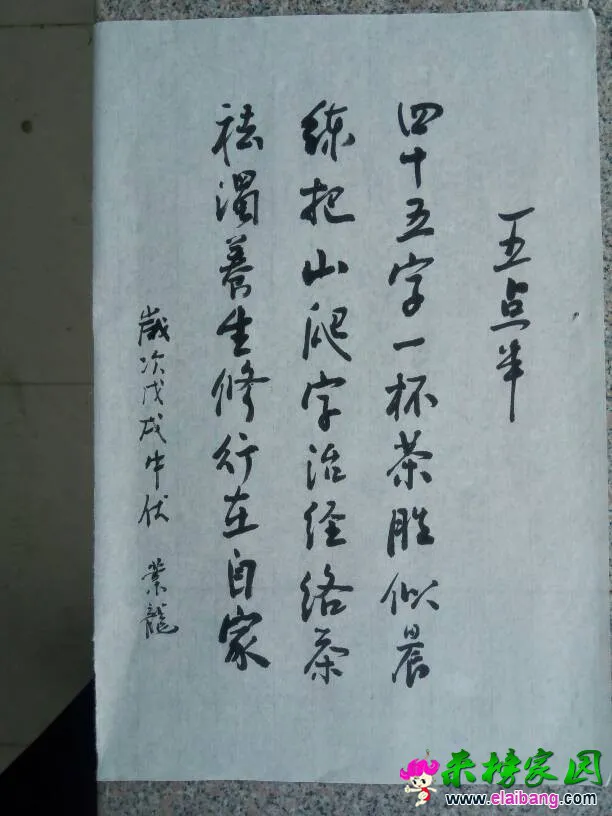 五点半
四十五字一杯茶胜似晨
练把山爬字治经络茶
祛浊养生修行在自家
歲次戊戌中伏 業龍
来榜家园
www.elaibang.com